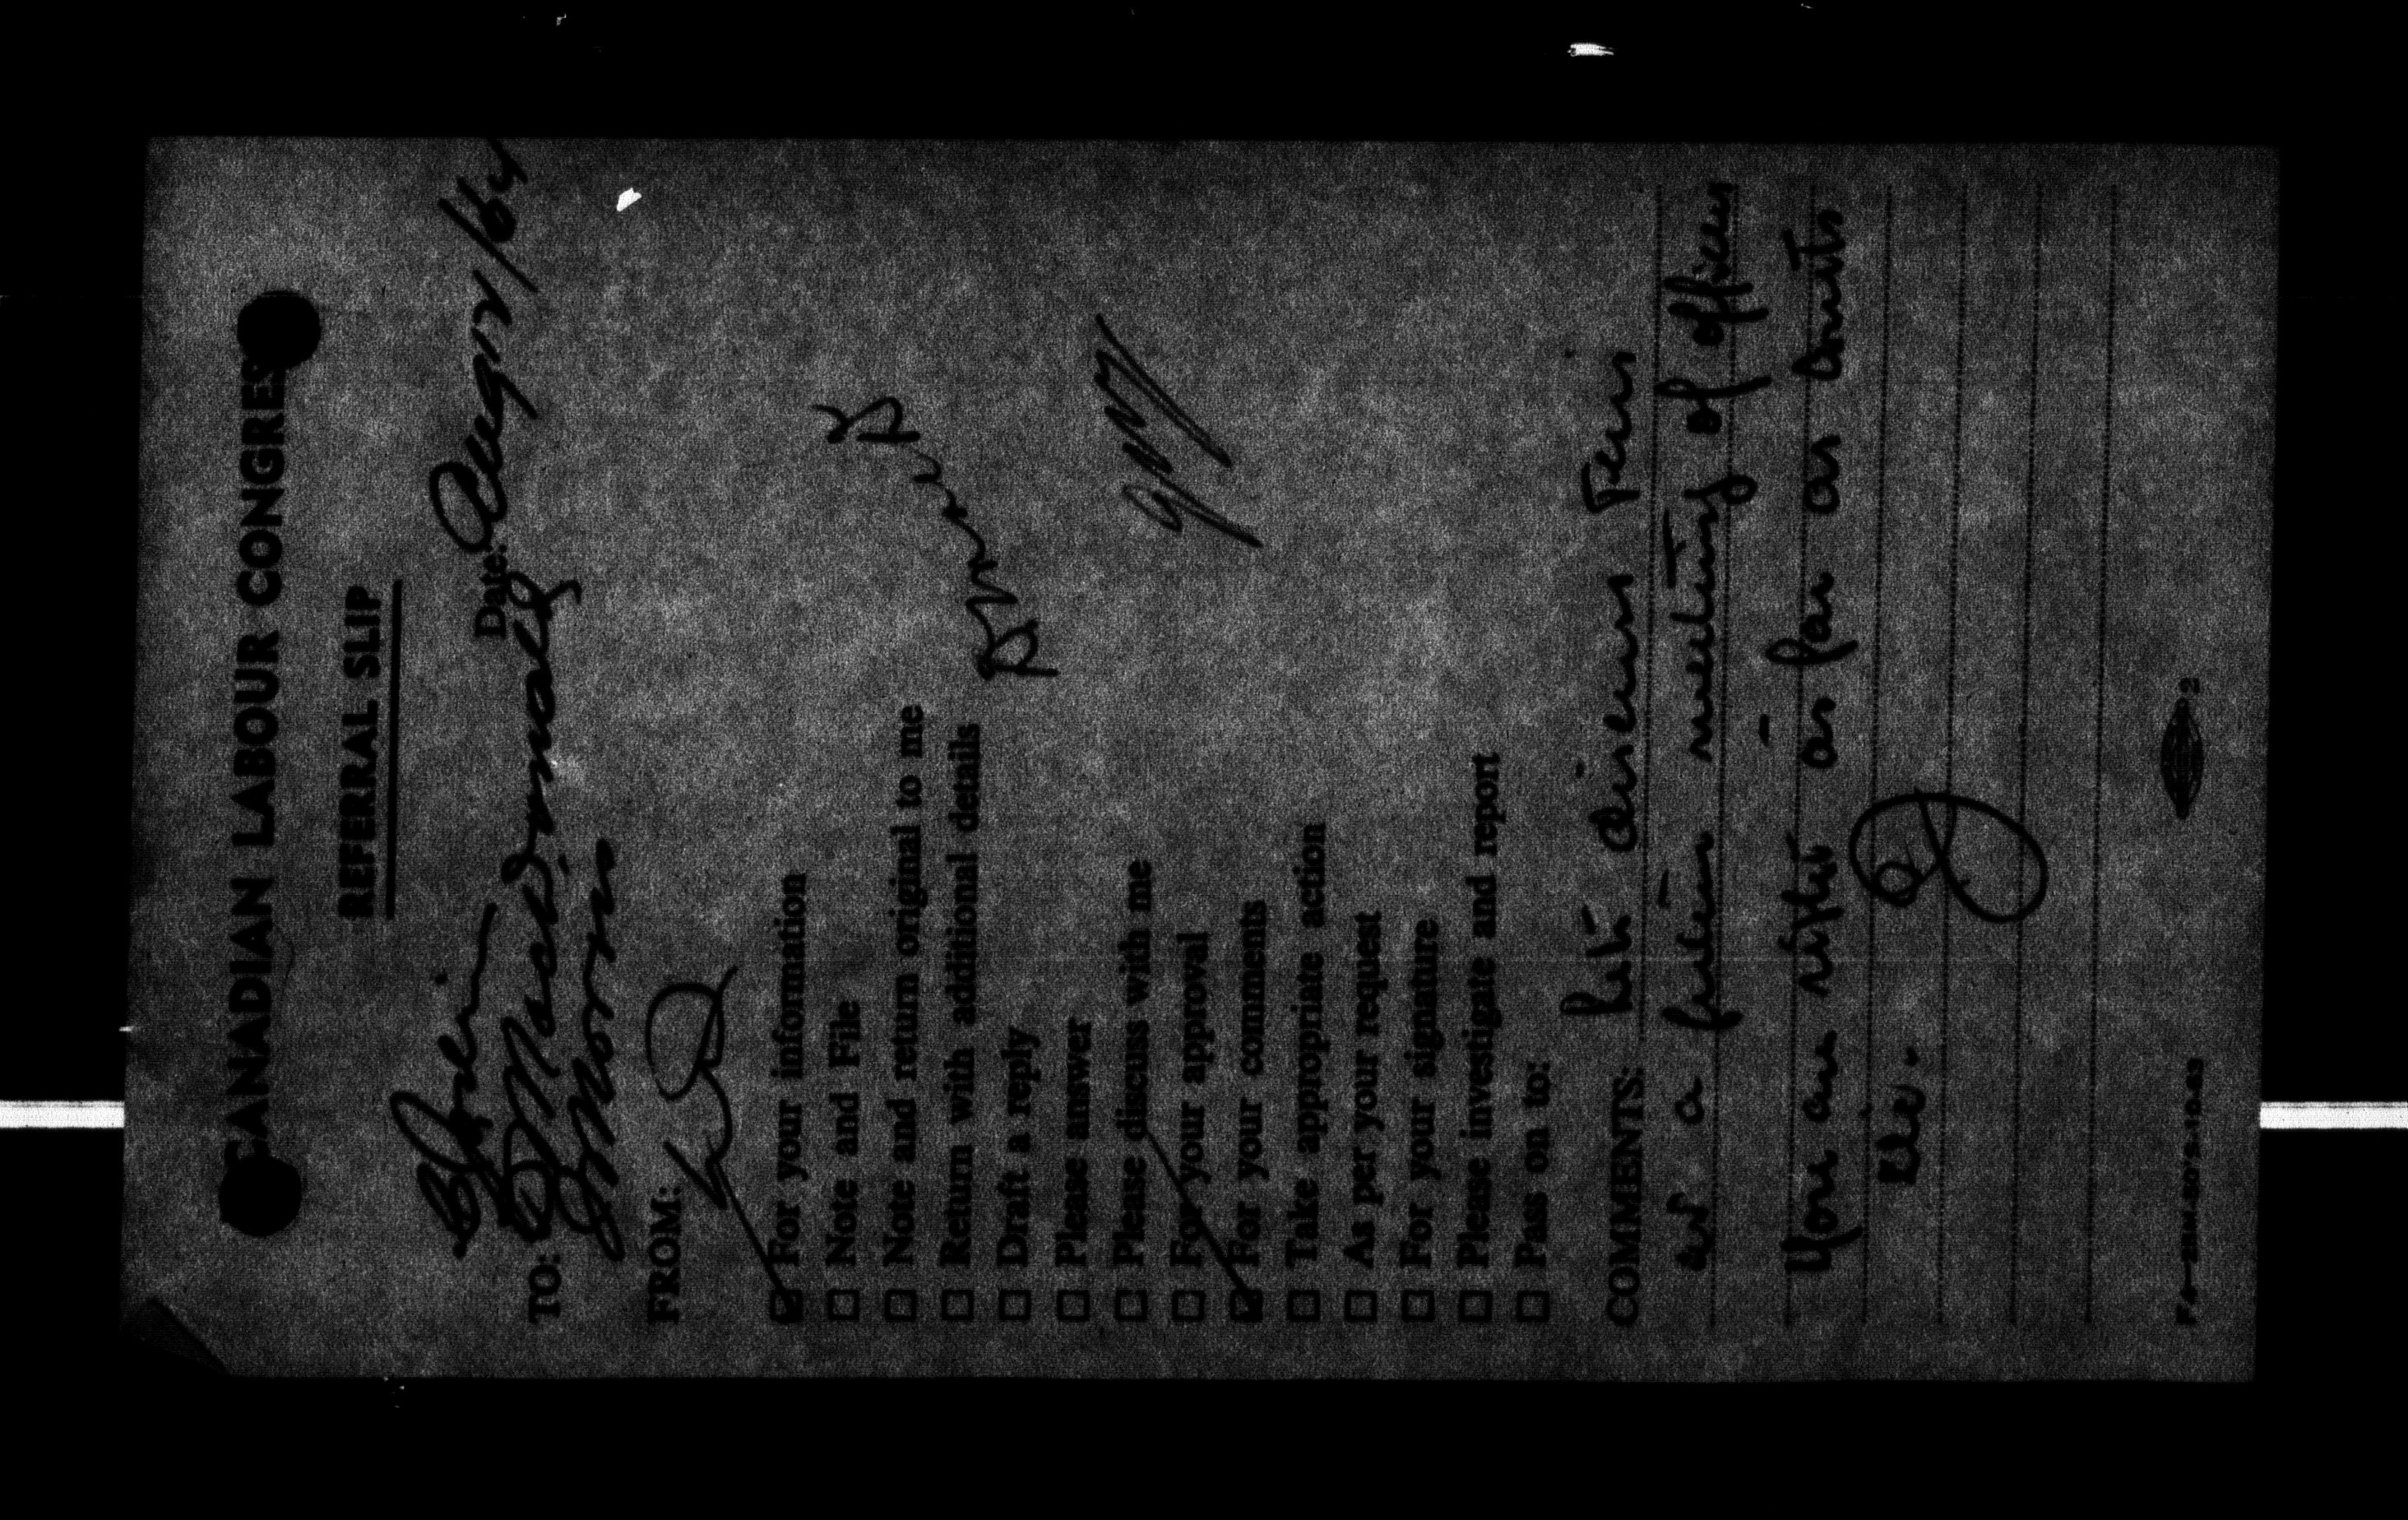 CANADIAN LABOUR CONGRESS
REFERRAL SLIP
Date: Aug 12/64
TO: MacDonald
Morris
FROM: WD
☑ For your information
☐ Note and File
☐ Note and return original to me
☐ Return with additional details
☐ Draft a reply
☐ Please answer
☐ Please discuss with me
☐ For your approval
☑ For your comments
☐ Take appropriate action
☐ As per your request
☐ For your signature
☐ Please investigate and report
☐ Pass on to:
COMMENTS: Let's discuss this
at a future meeting of officers
You are right as far as Courts
etc.
2